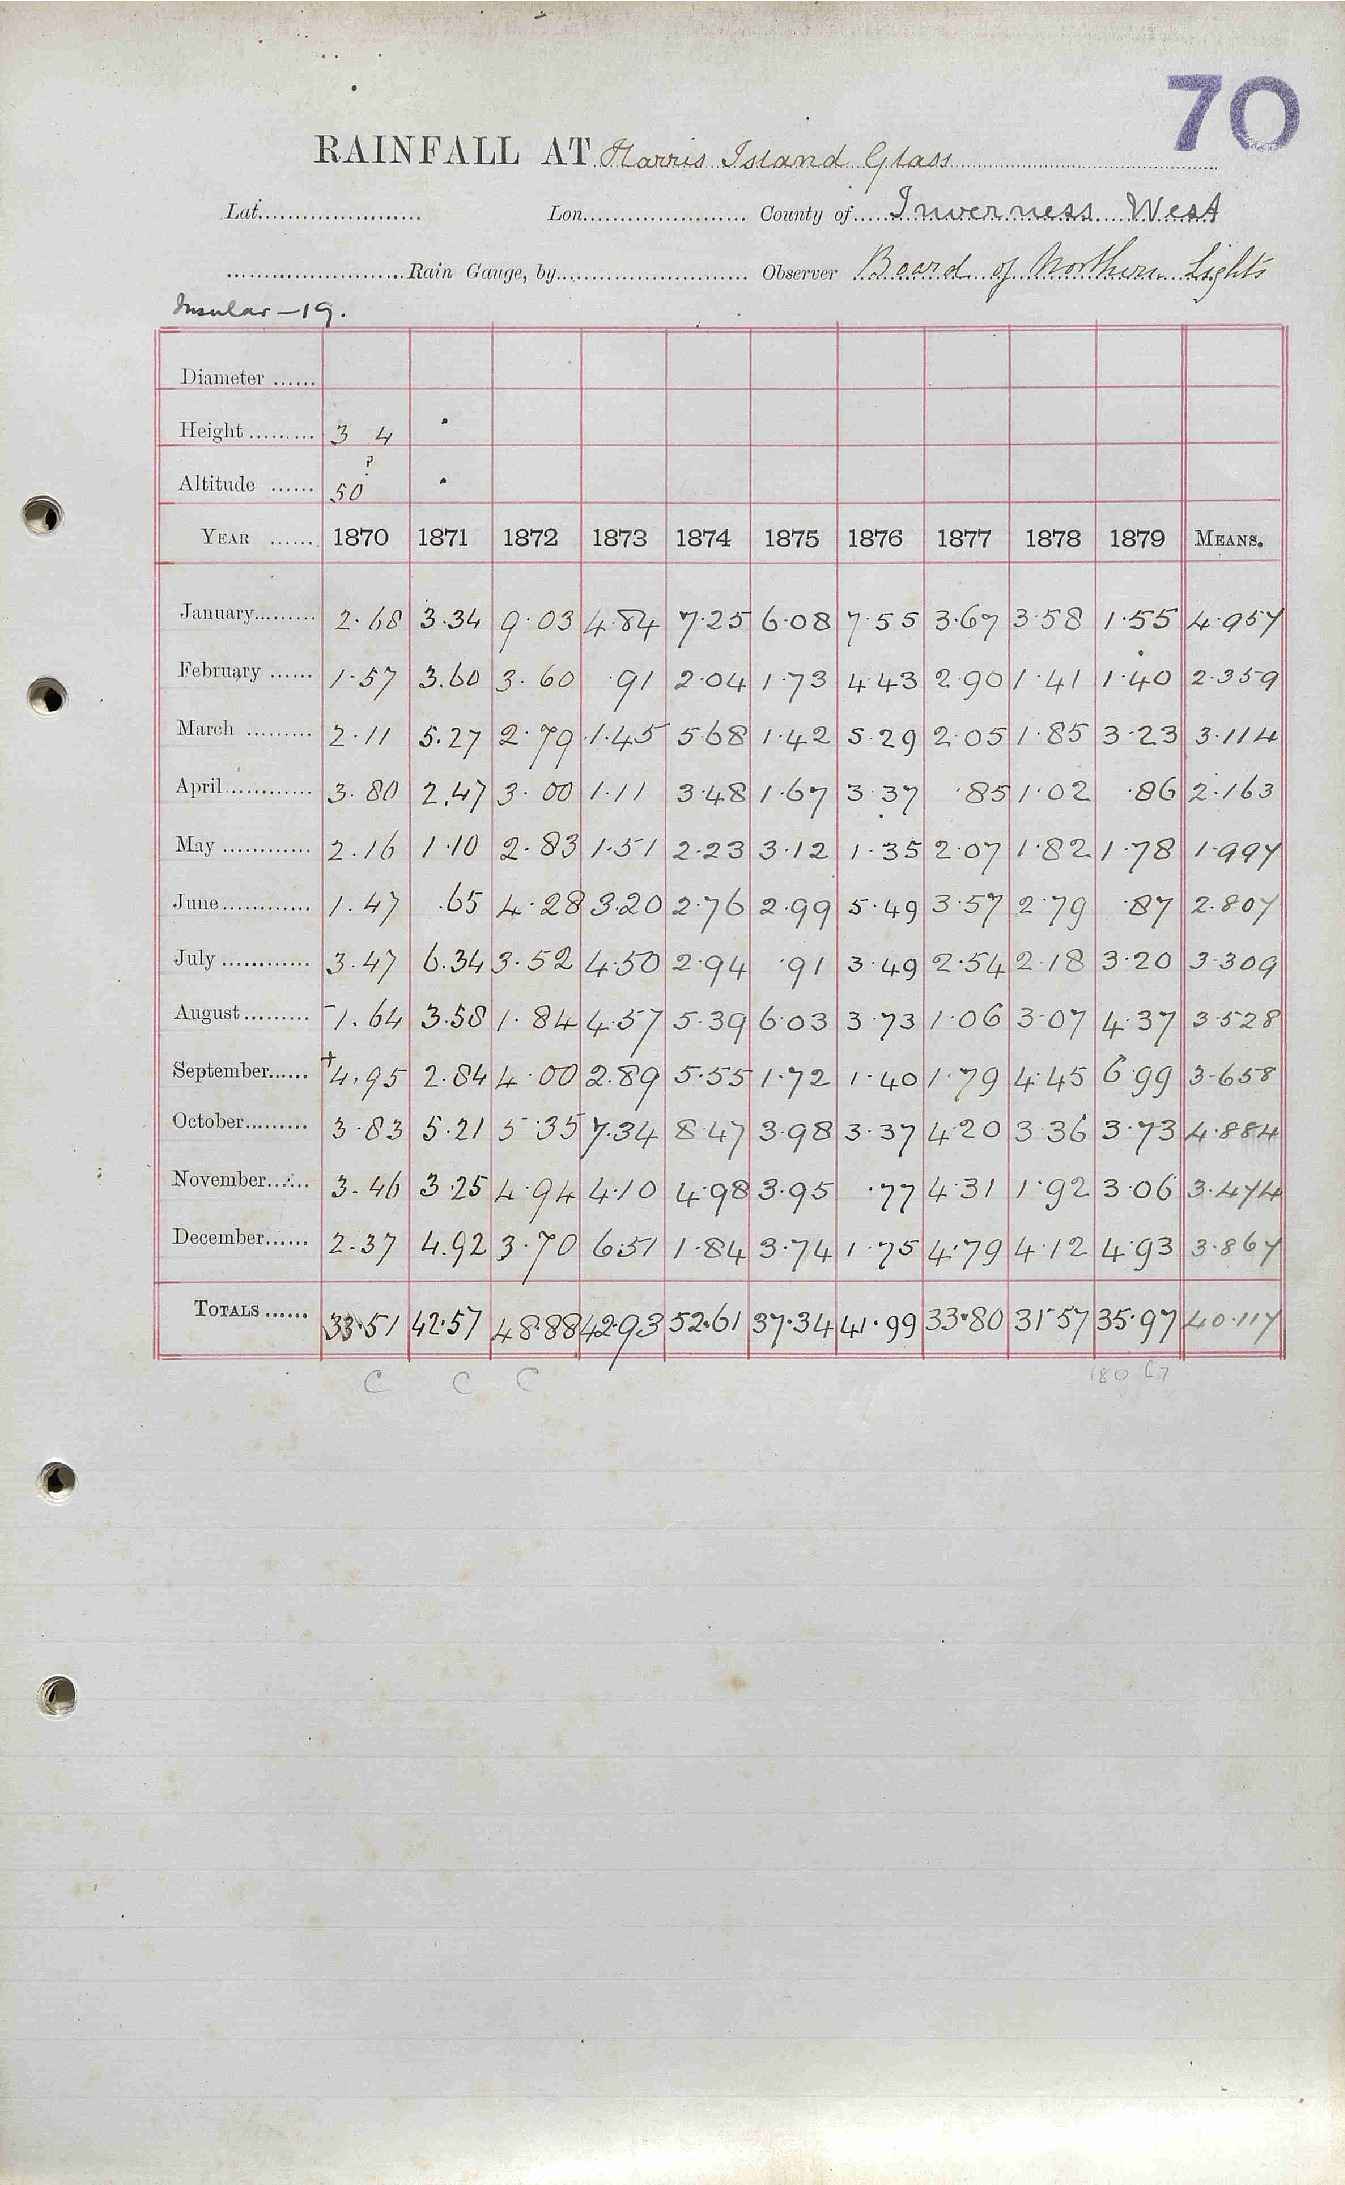 70
RAINFALL AT Harris Island Glass
Lat. Lon. County of Inverness West
Rain Gauge, by Observer Board of Northern Lights
Insular - 19.
Diameter
Height 3 4
?
Altitude 50
YEAR 1870 1871 1872 1873 1874 1875 1876 1877 1878 1879 MEANS.
January 2.68 3.34 9.03 4.84 7.25 6.08 7.55 3.67 3.58 1.55 4.957
February 1.57 3.60 3.60 .91 2.04 1.73 4.43 2.90 1.41 1.40 2.359
March 2.11 5.27 2.79 1.45 5.68 1.42 5.29 2.05 1.85 3.23 3.114
April 3.80 2.47 3.00 1.11 3.48 1.67 3.37 .85 1.02 .86 2.163
May 2.16 1.10 2.83 1.51 2.23 3.12 1.35 2.07 1.82 1.78 1.997
June 1.47 .65 4.28 3.20 2.76 2.99 5.49 3.57 2.79 .87 2.807
July 3.47 6.34 3.52 4.50 2.94 .91 3.49 2.54 2.18 3.20 3.309
August -1.64 3.58 1.84 4.57 5.39 6.03 3.73 1.06 3.07 4.37 3.528
September +4.95 2.84 4.00 2.89 5.55 1.72 1.40 1.79 4.45 6.99 3.658
October 3.83 5.21 5.35 7.34 8.47 3.98 3.37 4.20 3.36 3.73 4.884
November 3.46 3.25 4.94 4.10 4.98 3.95 .77 4.31 1.92 3.06 3.474
December 2.37 4.92 3.70 6.51 1.84 3.74 1.75 4.79 4.12 4.93 3.867
TOTALS 33.51 42.57 48.88 42.93 52.61 37.34 41.99 33.80 31.57 35.97 40.117
C C C 180 67